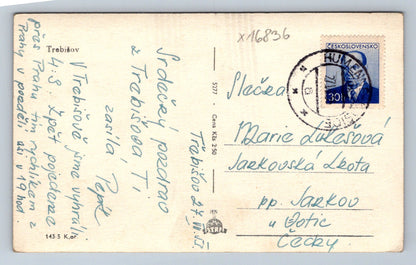 x16836
Trebišov
Srdečný pozdrav
z Trebišova Ti
zasílá, Pepík
V Trebišově jsme vyhráli
4:3. Zpět pojedeme
přes Prahu tím rychlíkem z
Prahy v neděli asi v 19 hod.
Trebišov 27.
143 S K
5277
Cena Kčs 2·50
ČESKOSLOVENSKO
30h
HUMEN
Slečna
Marie Lukešová
Jarkovská Lhota
pp. Jarkov
u Votic
Čechy